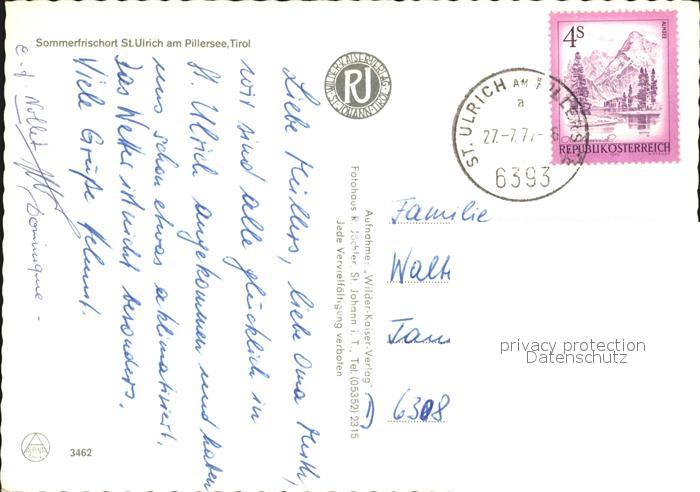 Sommerfrischort St. Ulrich am Pillersee, Tirol
Liebe Müllers, liebe Oma
wir sind alle glücklich in
St. Ulrich angekommen und haben
uns schon etwas aklimatisiert.
Das Wetter ist nicht besonders.
Viele Grüße Helmut.
Dominique -
WILDER-KAISER-VERLAG
RJ
ST. JOHANN - TIROL
Aufnahme: „Wilder-Kaiser-Verlag"
Fotohaus R. Jöchler, St. Johann i. T., Tel. (05352) 2315
Jede Vervielfältigung verboten
ST. ULRICH AM PILLERSEE
a
27.-7.77.-8
6393
4S
ALMSEE
REPUBLIK ÖSTERREICH
Familie
Walt
6308
privacy protection
Datenschutz
ALPINA
3462